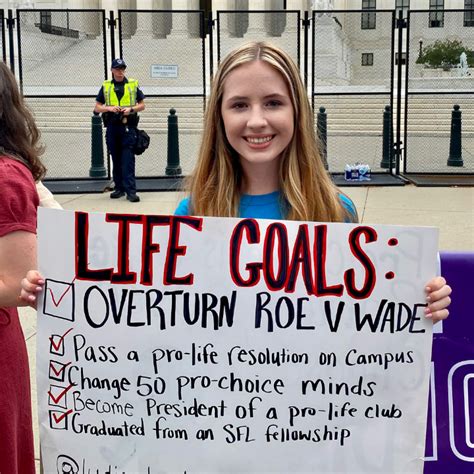 LIFE GOALS:
OVERTURN ROE V WADE
Pass a pro-life resolution on Campus
Change 50 pro-choice minds
Become President of a pro-life club
Graduated from an SFL fellowship